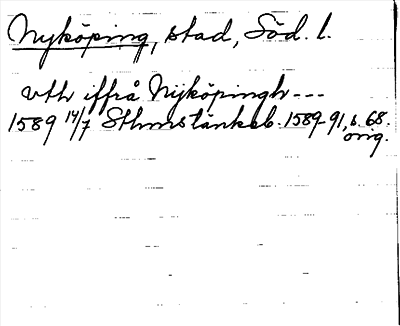 Nyköping, stad, Söd. l.
vth iffrå Nyköpingh ---
1589 14/7 Sthmstänkeb. 1589-91, s. 68.
orig.